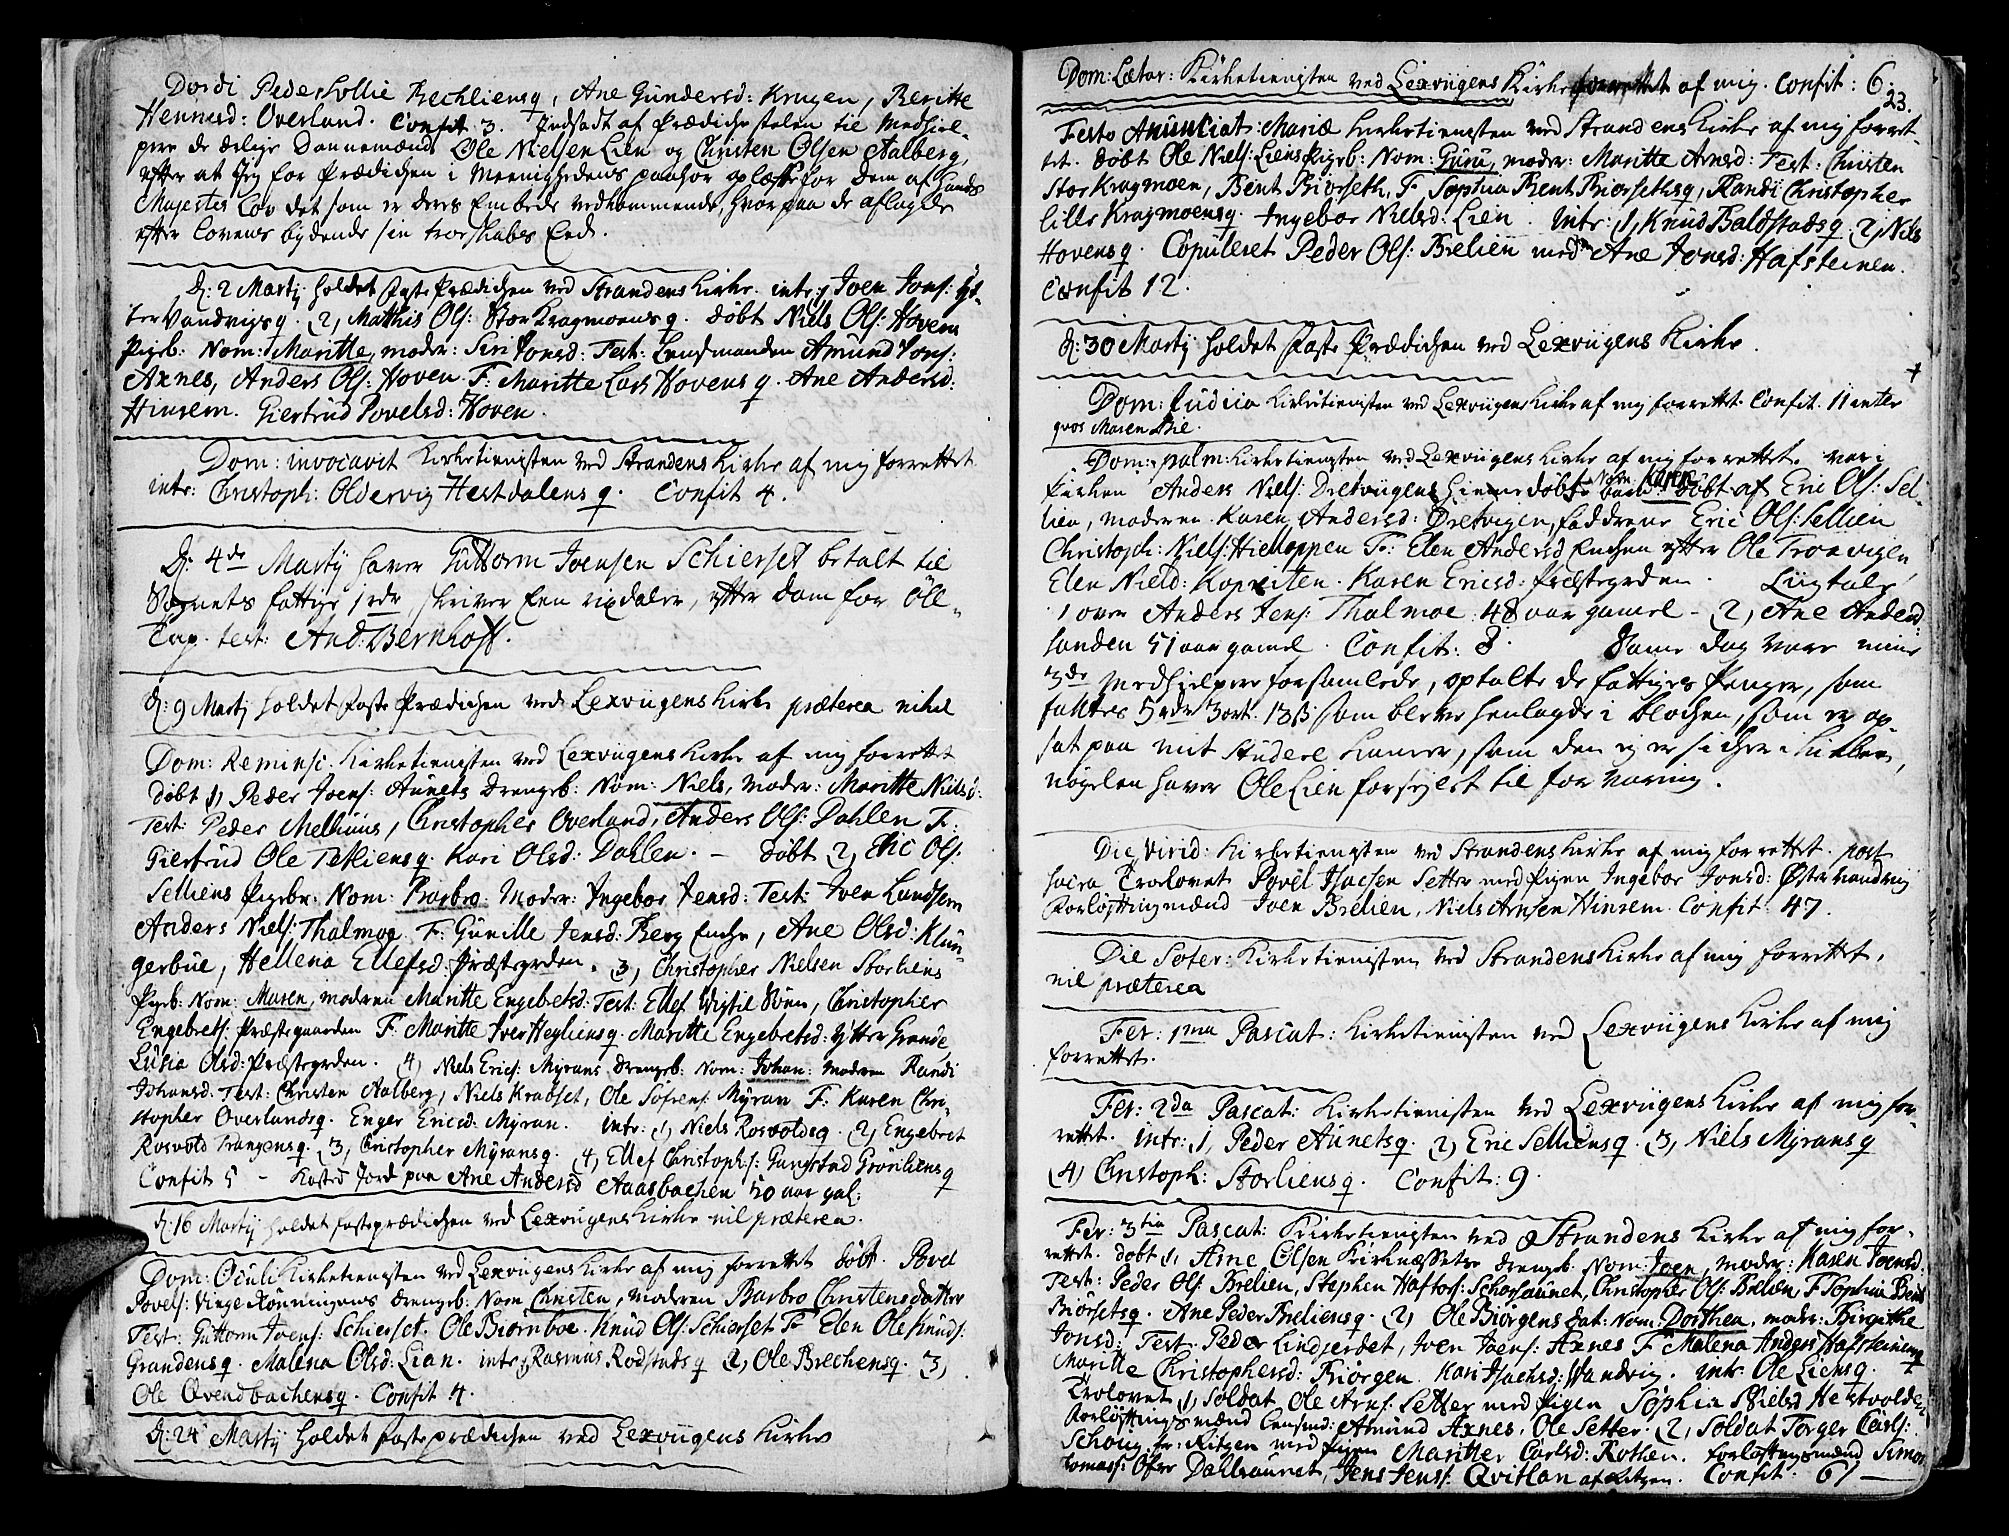 Dordi Peder Sollie Rechliensq, Ane Gundersd: Krugen, Beritte
Hennersd: Overland. Confit 3. Indsadt af Prædichestolen til Medhiel-
pere de ærlige Dannemænd Ole Nielsen Lien og Christen Olsen Aalberg,
efter at jeg for Prædichen i Meenighedens paahør oplæste for dem af Hands
Majestes Lov det som er deres Embede vedkommende, hvor paa de aflagde
efter Lovens bydende sin troskabs Eed.
D: 2 Martij holdet faste Prædichen ved Strandens Kirke. intr: 1, Joen Jons: Yt-
ter Vandvigsq. 2, Mathis Ols: Stor Kragmoensq. døbt Niels Ols: Hovens
Pigeb: Nom: Maritte, moder: Siri Jonsd: Test: Lensmanden Amund Jons:
Axnes, Anders Ols: Hoven. F: Maritte Lars Hovensq. Ane Andersd:
Hinsem. Giertrud Povelsd: Hoven.
Dom: invocavit Kirketienesten ved Strandens Kirke af mig forrettet
intr: Christoph: Oldervig Hestdalensq. Confit 4.
D: 4de Martij haver Guttorm Joensen Schierset betalt til
Sognets fattige 1 rdr, skriver Een rixdaler, efter dom for Öll-
Tap. test: And: Bernhoft.
D: 9 Martij holdet faste Prædichen ved Lexvigens Kirke præterea nihil
Dom: Reminsc. Kirketienesten ved Lexvigens Kirke af mig forrettet
døbt 1, Peder Joens: Aunets drengeb: Nom: Niels, moder: Maritte Nielsd:
Test: Peder Melhuus, Christopher Overland, Anders Ols: Dahlen F:
Giertrud Ole Tetliensq. Kari Olsd: Dahlen. - døbt 2, Eric Ols:
Selliens Pigebr: Nom: Barbro Moder: Ingebor Jensd: Test: Iver Landsem
Anders Niels: Thalmoe. F: Gunille Jensd: Berg Enche, Ane Olsd: Klun-
gerbue, Hellena Ellefsd: Præstegrden. 3, Christopher Nielsen Storliens
Pigeb: Nom: Maren, moderen Maritte Engebretsd: Test: Ellef Vigtil Søren, Christopher
Engebrets: Præstegaarden F: Maritte Iver Heyliensq. Maritte Engebretsd: Ytter Grande
Lusia Olsd: Præstegrden. 4) Niels Erics: Myrans drengeb: Nom: Johan: moderen Randi
Johansd: Test: Christen Aalberg, Niels Kradset, Ole Sofrens: Myran F: Karen Chri-
stopher Overlandsq. Enger Ericsd: Myran. intr: 1, Niels Rosvoldsq. 2, Engebret
Rosvold Trangensq. 3, Christopher Myransq. 4, Ellef Christophs: Gangstad Grönliensq
Confit 5 - Kasted Jord paa Ane Andersd Aaasbachen 50 aar gal:
D: 16 Martij holdet fasteprædichen ved Lexvigens Kirke nil præterea.
Dom: Oculi Kirketienesten ved Lexvigens Kirke af mig forrettet døbt. Povel
Povels: Vinge Rönningens drengeb: Nom Christen, moderen Barbro Christensdatter
Test: Guttorm Joens: Schierset. Ole Biørnboe. Knud Ols: Schierset F Elen Ole Knuds:
Grandensq. Malena Olsd: Lian. intr: 1, Rasmus Rodstadsq 2, Ole Brechensq. 3,
Ole Qvendbachensq. Confit 4.
D: 24 Martij holdet fasteprædichen ved Lexvigens Kirke
Dom: Lætar: Kirketienesten ved Lexvigens Kirke forrettet af mig. Confit: 6.
23.
Festo Anunciat: Mariæ Kirketienesten ved Strandens Kirke af mig forret-
tet. døbt Ole Niels: Liens Pigeb: Nom: Guru, moder: Maritte Arnsd: Test: Christen
Stor Kragmoen, Bent Biørseth, F Sophia Bent Biørsethsq, Randi Christopher
lille Kragmoensq. Ingebor Nielsd: Lien. intr: 1, Knud Baldstadsq. 2, Niels
Hovensq. Copuleret Peder Ols: Brelien med Ane Jonsd: Hafsteinen.
Confit 12.
D: 30 Martij holdet faste Prædichen ved Lexvigens Kirke.
Dom: Judica Kirketienesten ved Lexvigens Kirke af mig forrettet. Confit. 11 inter
qvos Maren Bie.
Dom: palm: Kirketienesten ved Lexvigens Kirke af mig forrettet. var i
Kirken Anders Niels: Dretvigens hiemedøbte barn Nom: Karen døbt af Eric Ols: Sel-
lien, moderen Karen Andersd: Dretvigen, faddrene Eric Ols: Sellien
Christoph: Niels: Hielloppen F: Elen Andersd Enchen efter Ole Traavigen,
Elen Nielsd: Kopreiten. Karen Ericsd: Præstegrden. Liigtale
1 over Anders Jens: Thalmoe 48 aar gamel - 2, Ane Andersd:
Sanden 51 aar gamel. Confit: 8. Same dag vare mine
3de Medhielpere forsamlede, optalte de fattiges Penger, som
fandtes 5 rdr 3 ort. 13 ß som bleve henlagde i blochen, som er op
sat paa mit Studere Kamer, som den ey er sicher i Kirken,
nøgelen haver Ole Lien forsejlet til forvaring.
Die Virid: Kirketienesten ved Strandens Kirke af mig forrettet. post
sacra Trolovet Povel Isacsen Setter med Pigen Ingebor Jonsd: Øster Vandvig
Forløftingmænd Joen Brelien, Niels Arnsen Hinsem. Confit: 47.
Die Soter: Kirketienesten ved Strandens Kirke af mig forrettet,
nil præterea
Fer: 1ma Pascat: Kirketienesten ved Lexvigens Kirke af mig
forrettet.
Fer: 2da Pascat: Kirketienesten ved Lexvigens Kirke af mig for-
rettet. intr: 1, Peder Aunetsq. 2, Eric Selliensq. 3, Niels Myransq
4, Christoph: Storliensq. Confit: 9.
Fer: 3tia Pascat: Kirketienesten ved Strandens Kirke af mig for-
rettet. døbt 1, Arne Olsen Kirknessets drengeb: Nom: Joen, moder: Karen Joensd.
Test: Peder Ols: Brelien, Stephen Haftors: Schorsaunet, Christopher Ols: Brelien F Sophia Bent
Biørsetsq. Ane Peder Breliensq. 2, Ole Biørgens dat: Nom: Dorthea, modr: Birgithe
Jonsd: Test. Peder Lindgerdet, Iver Joens: Axnes F Malena Anders Hafsteinensq
Maritte Christophersd: Biørgen. Kari Isachsd: Vandvig. intr. Ole Liensq.
Trolovet 1, Soldat Ole Arns: Setter med Pigen Sophia Nielsd Hestvolden
Forløftingsmænd Lensmd: Amund Axnes. Ole Setter. 2, Soldat Torger Carls:
Schoug fr: Ritzen med Pigen Maritte Carlsd: Rotlen. Forløftingsmænd Simon
Tomas: Øfre Dahlsaunet, Jens Jens: Qvitlan af Ritzen. Confit. 61